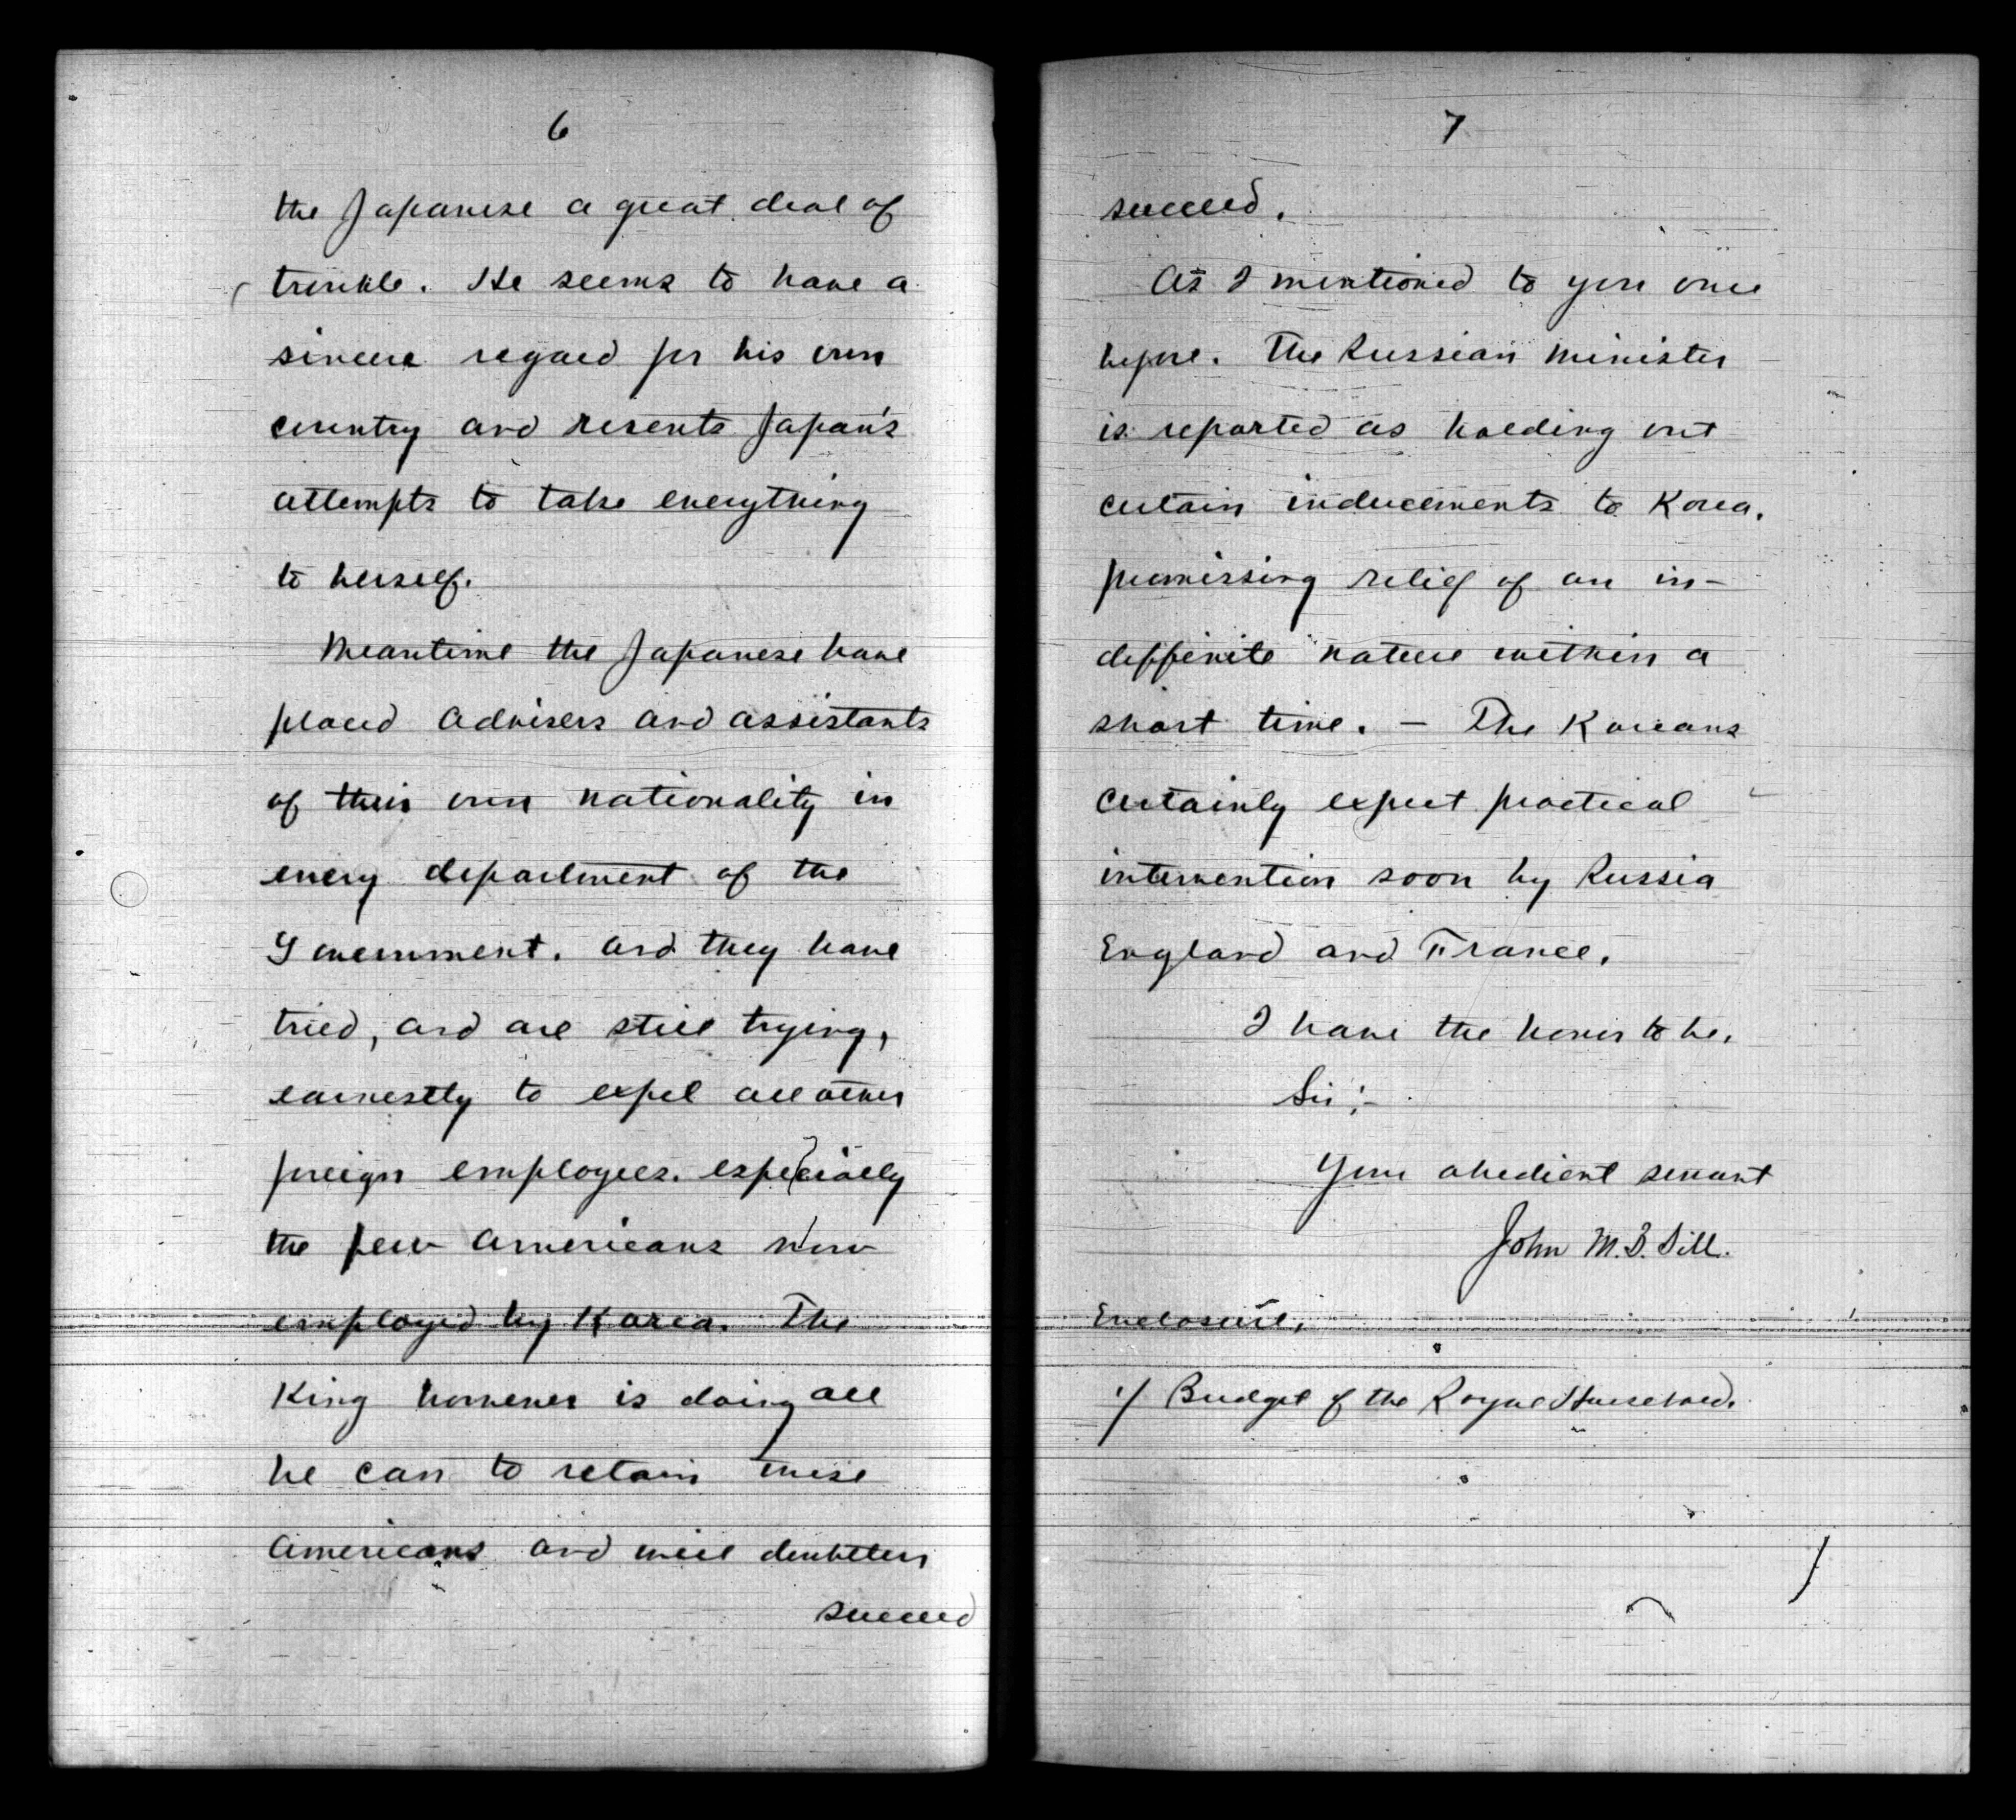 6
the Japanese a great deal of
trouble. He seems to have a
sincere regard for his own
country and resents Japan's
attempts to take everything
to herself.
Meantime the Japanese have
placed advisers and assistants
of their own nationality in
every department of the
Government. and they have
tried, and are still trying,
earnestly to expel all other
foreign employees. especially
the few Americans now
employed by Korea. The
King however is doing all
he can to retain these
Americans and will doubtless
succeed
7
succeed.
As I mentioned to you once
before. The Russian Minister
is reported as holding out
certain inducements to Korea.
promissing relief of an in-
deffinite nature within a
short time. - The Koreans
certainly expect practical
intervention soon by Russia
England and France.
I have the honor to be.
Sir;-
Your obedient servant
John M. B. Sill.
Enclosure.
1/ Budget of the Royal Household.